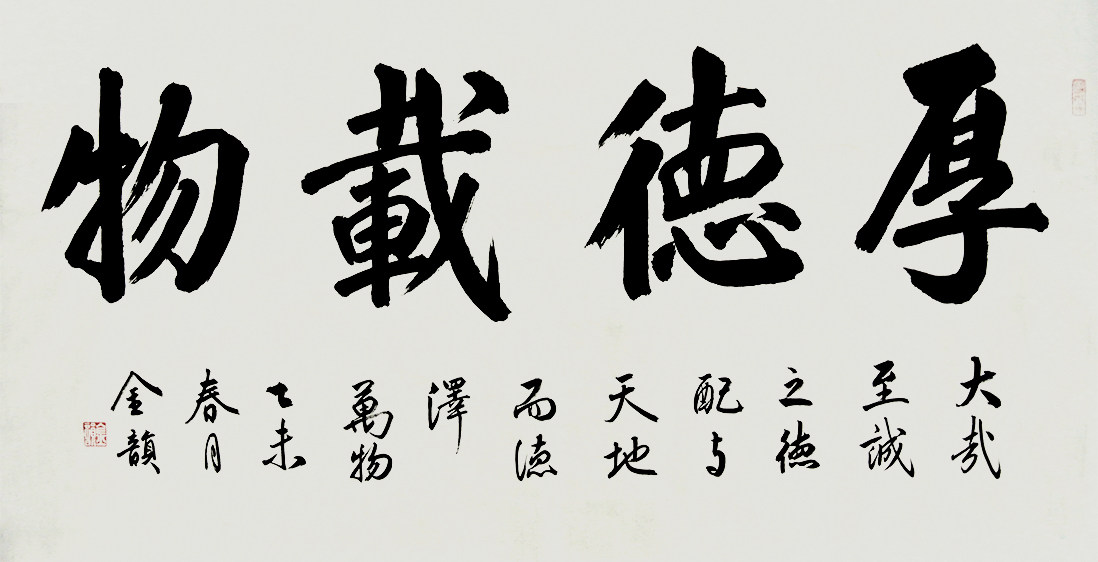 厚德載物
大哉
至誠
之德
配与
天地
而德
澤
萬物
乙未
春月
金韻